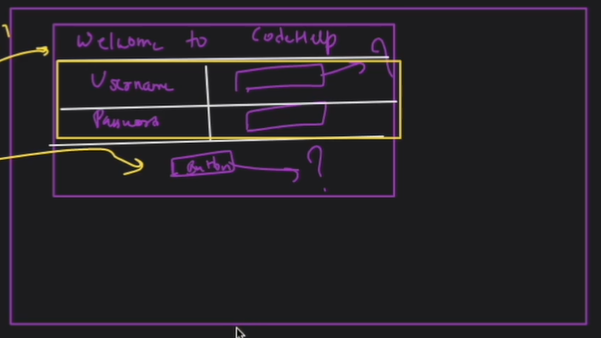 Welcome to CodeHelp ?
Username
Password
Button ?